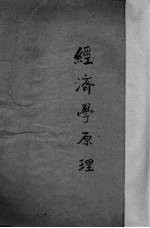 經濟學原理